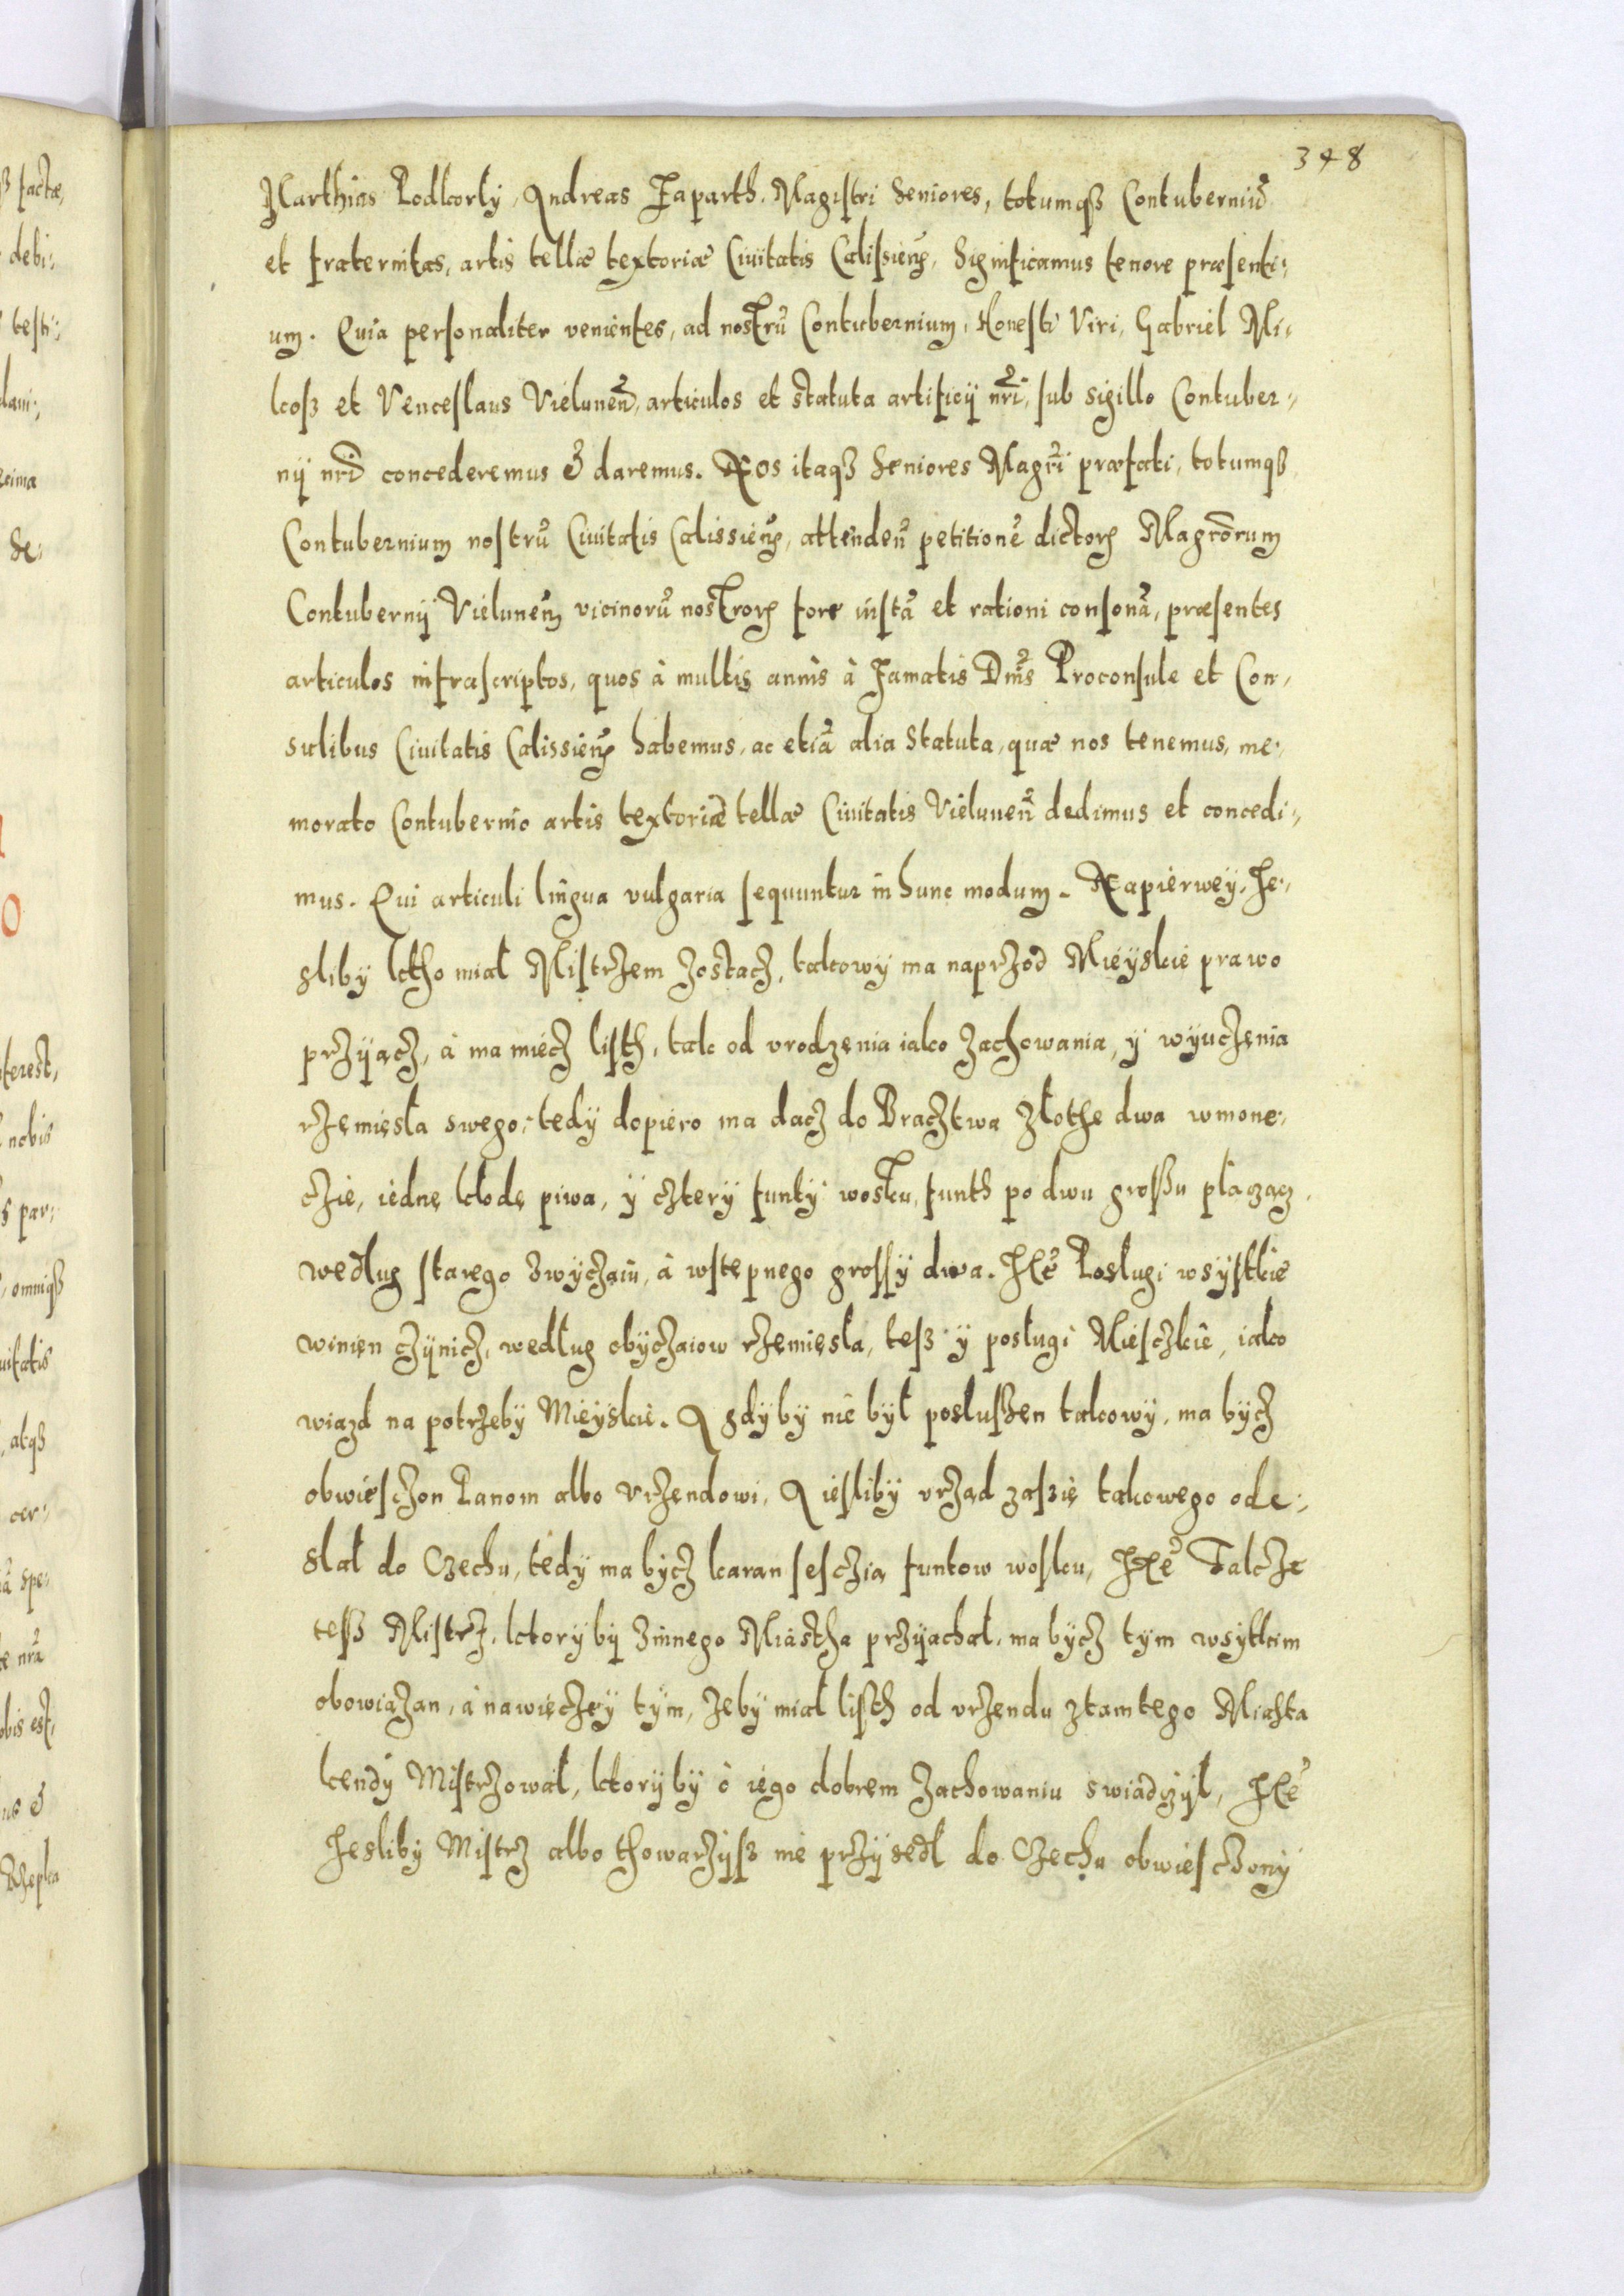 348
Marthias Podkorky, Andreas Faparth, Magistri Seniores, totumqз Contuberniũ
et fraternitas, artis tellæ textoriæ Ciuitatis Calissieñ, Significamus tenore præsenti:
um. Quia personaliter venientes, ad nostrũ Contubernium, Honesti Viri, Gabriel Mi:
kosz et Venceslaus Vieluneñ, articulos et statuta artificij nr̃i, sub sigillo Contuber:
nij nr̃i concederemus & daremus. Nos itaqз Seniores Magr̃i præfati, totumqз
Contubernium nostrũ Ciuitatis Calissieñ, attendeñ petitionẽ dictorꝝ Magr̃orum
Contubernij Vieluneñ vicinorũ nostrorꝝ fore iustã et rationi consonã, præsentes
articulos infrascriptos, quos à multis annis à Famatis Dnĩs Proconsule et Con:
sulibus Ciuitatis Calissieñ habemus, ac etiã alia Statuta, quæ nos tenemus, me:
morato Contubernio artis textoriæ tellæ Ciuitatis Vieluneñ dedimus et concedi:
mus. Qui articuli lingua vulgaria sequuntur in hunc modum. Napierwey, Je:
sliby ktho miał Mistrzem zostacz, takowy ma naprzod Mieyskie prawo
przyącz, à ma miecz listh, tak od vrodzenia iako zachowania, y wyuczenia
rzemięsła swego, tedy dopiero ma dacz do Bracztwa złothe dwa wmone:
czie, iednę kłodę piwa, y cztery funty wosku, funth po dwu groszu płacząc,
według starego zwyczaiu, à wstepnego grossy dwa. Itẽ Posługi wsystkie
winien czynicz, według obyczaiow rzemięsła, tesz y posługi Miesczkie, iako
wiazd na potrzeby Mieyskie. A gdyby nie był posłuszen takowy, ma bycz
obwiesczon Panom albo Vrzendowi, A iesliby vrząd zasię takowego ode:
słał do Czechu, tedy ma bycz karan sesczią funtow wosku, Itẽ Takze
tesz Mistrz, ktoryby zinnego Miastha przyachał, ma bycz tym wsytkim
obowiązan, à nawięczey tym, zeby miał listh od vrzendu ztamtego Miasta
kendy Mistrzował, ktoryby ò iego dobrem zachowaniu swiadczył, Itẽ
Jesliby Mistrz albo thowarzysz nie przysedł do Czechu obwiesczony